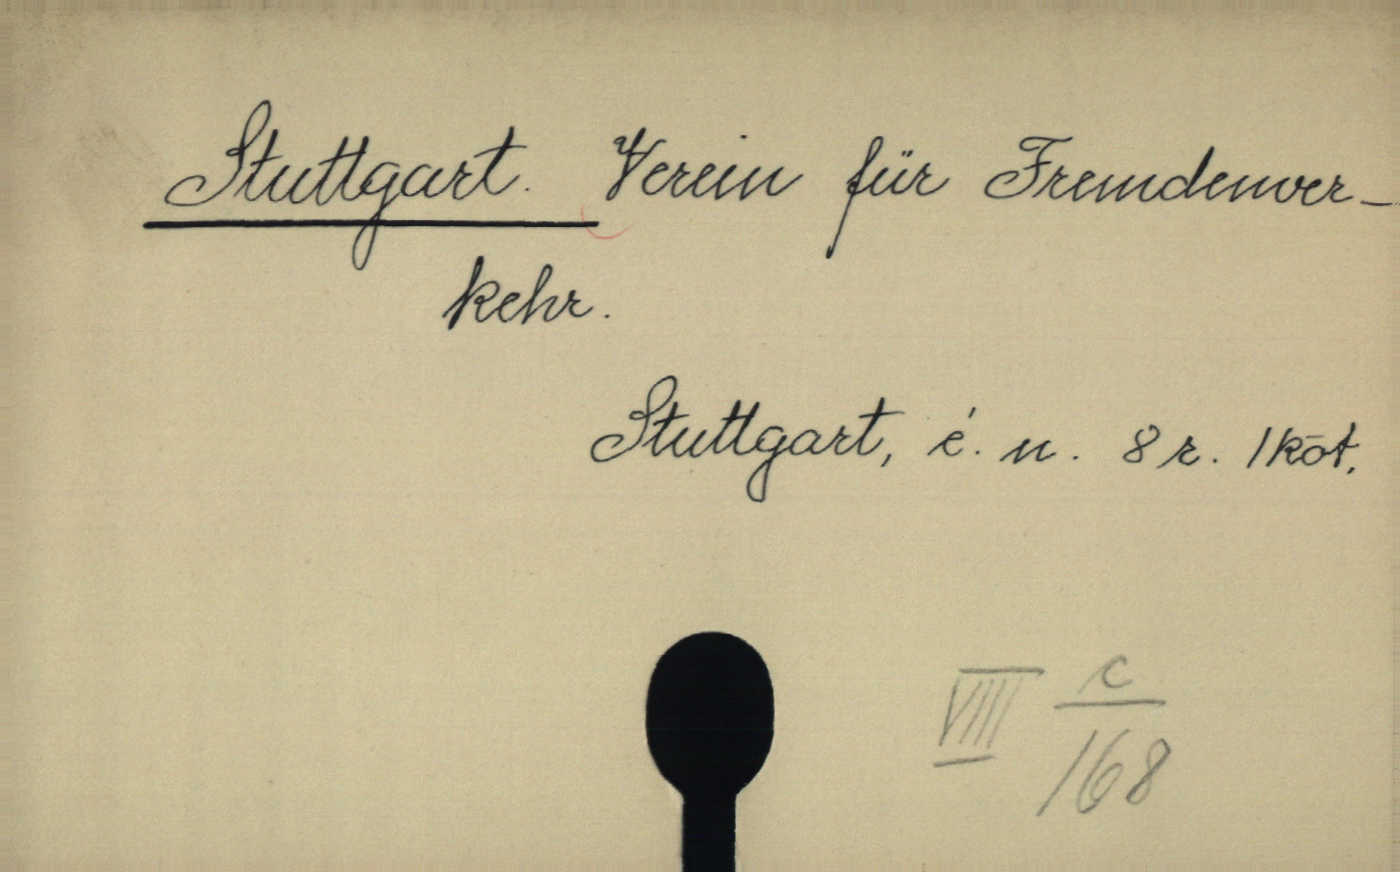 Stuttgart. Verein für Fremdenver-
kehr.
Stuttgart, é. n. 8r. 1 köt.
VIII c/168